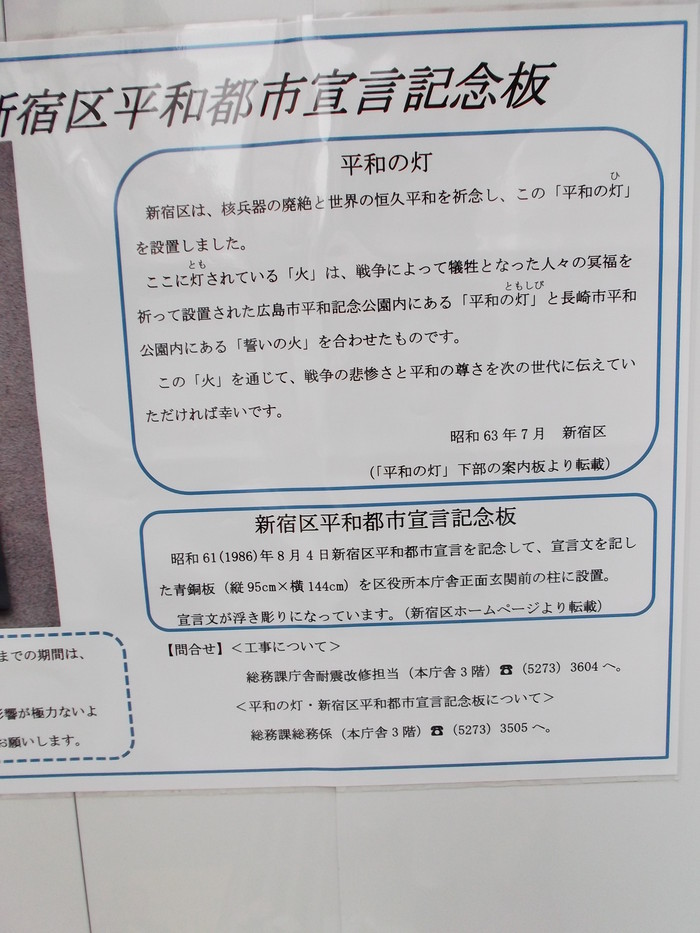 新宿区平和都市宣言記念板
平和の灯
新宿区は、核兵器の廃絶と世界の恒久平和を祈念し、この「平和の灯」
ひ
を設置しました。
とも
ここに灯されている「火」は、戦争によって犠牲となった人々の冥福を
ともしび
祈って設置された広島市平和記念公園内にある「平和の灯」と長崎市平和
公園内にある「誓いの火」を合わせたものです。
この「火」を通じて、戦争の悲惨さと平和の尊さを次の世代に伝えてい
ただければ幸いです。
昭和 63 年 7 月　新宿区
（「平和の灯」下部の案内板より転載）
新宿区平和都市宣言記念板
昭和 61(1986)年 8 月 4 日新宿区平和都市宣言を記念して、宣言文を記し
た青銅板（縦 95cm×横 144cm）を区役所本庁舎正面玄関前の柱に設置。
宣言文が浮き彫りになっています。（新宿区ホームページより転載）
までの期間は、
影響が極力ないよ
お願いします。
【問合せ】＜工事について＞
総務課庁舎耐震改修担当（本庁舎 3 階）☎（5273）3604 へ。
＜平和の灯・新宿区平和都市宣言記念板について＞
総務課総務係（本庁舎 3 階）☎（5273）3505 へ。